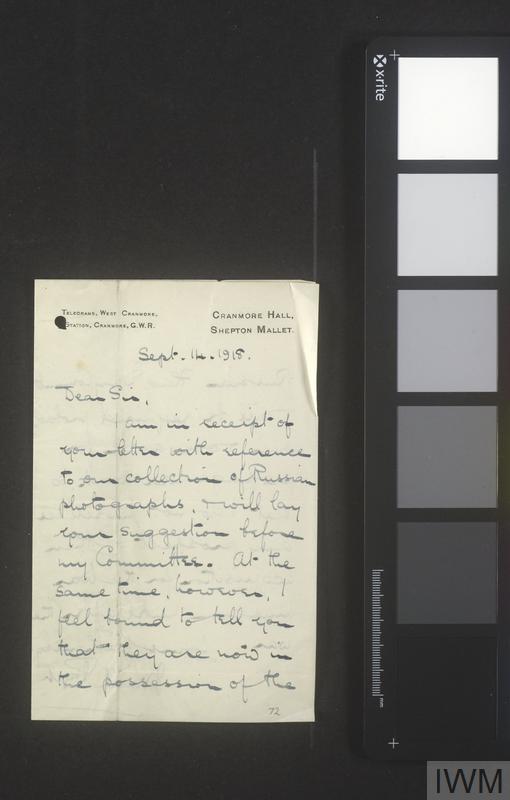 x·rite
Telegrams, West Cranmore,
Station, Cranmore, G.W.R.
Cranmore Hall,
Shepton Mallet.
Sept. 14. 1918.
Dear Sir,
I am in receipt of
your letter with reference
to our collection of Russian
photographs, & will lay
your suggestion before
my Committee. At the
same time, however, I
feel bound to tell you
that they are now in
the possession of the
72
mm
IWM